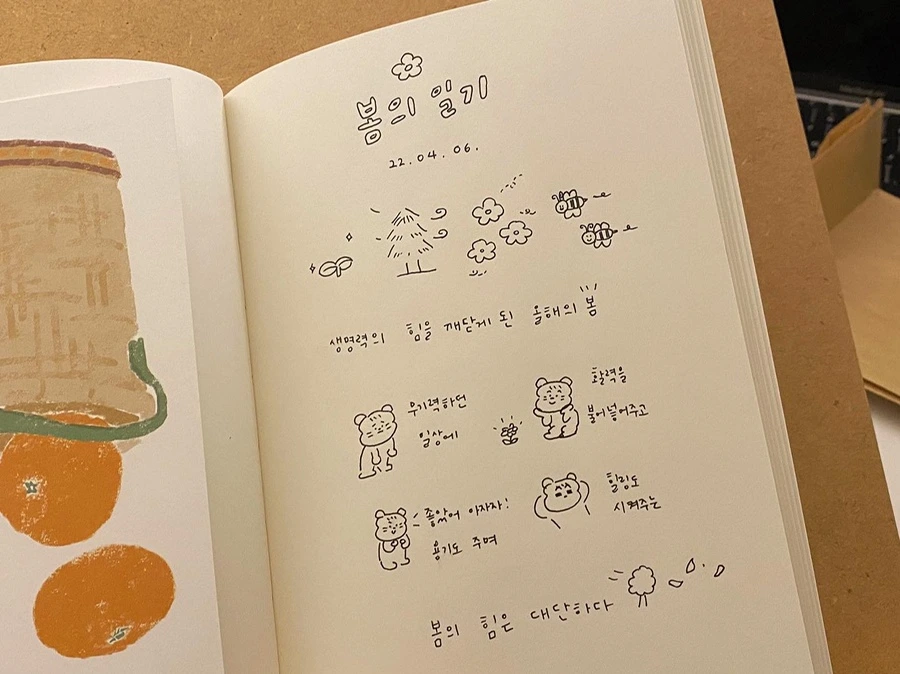 봄의 일기
22.04.06.
생명력의 힘을 깨닫게 된 올해의 봄
무기력하던
일상에
활력을
불어넣어주고
좋았어 아자자!
용기도 주며
힐링도
시켜주는
봄의 힘은 대단하다